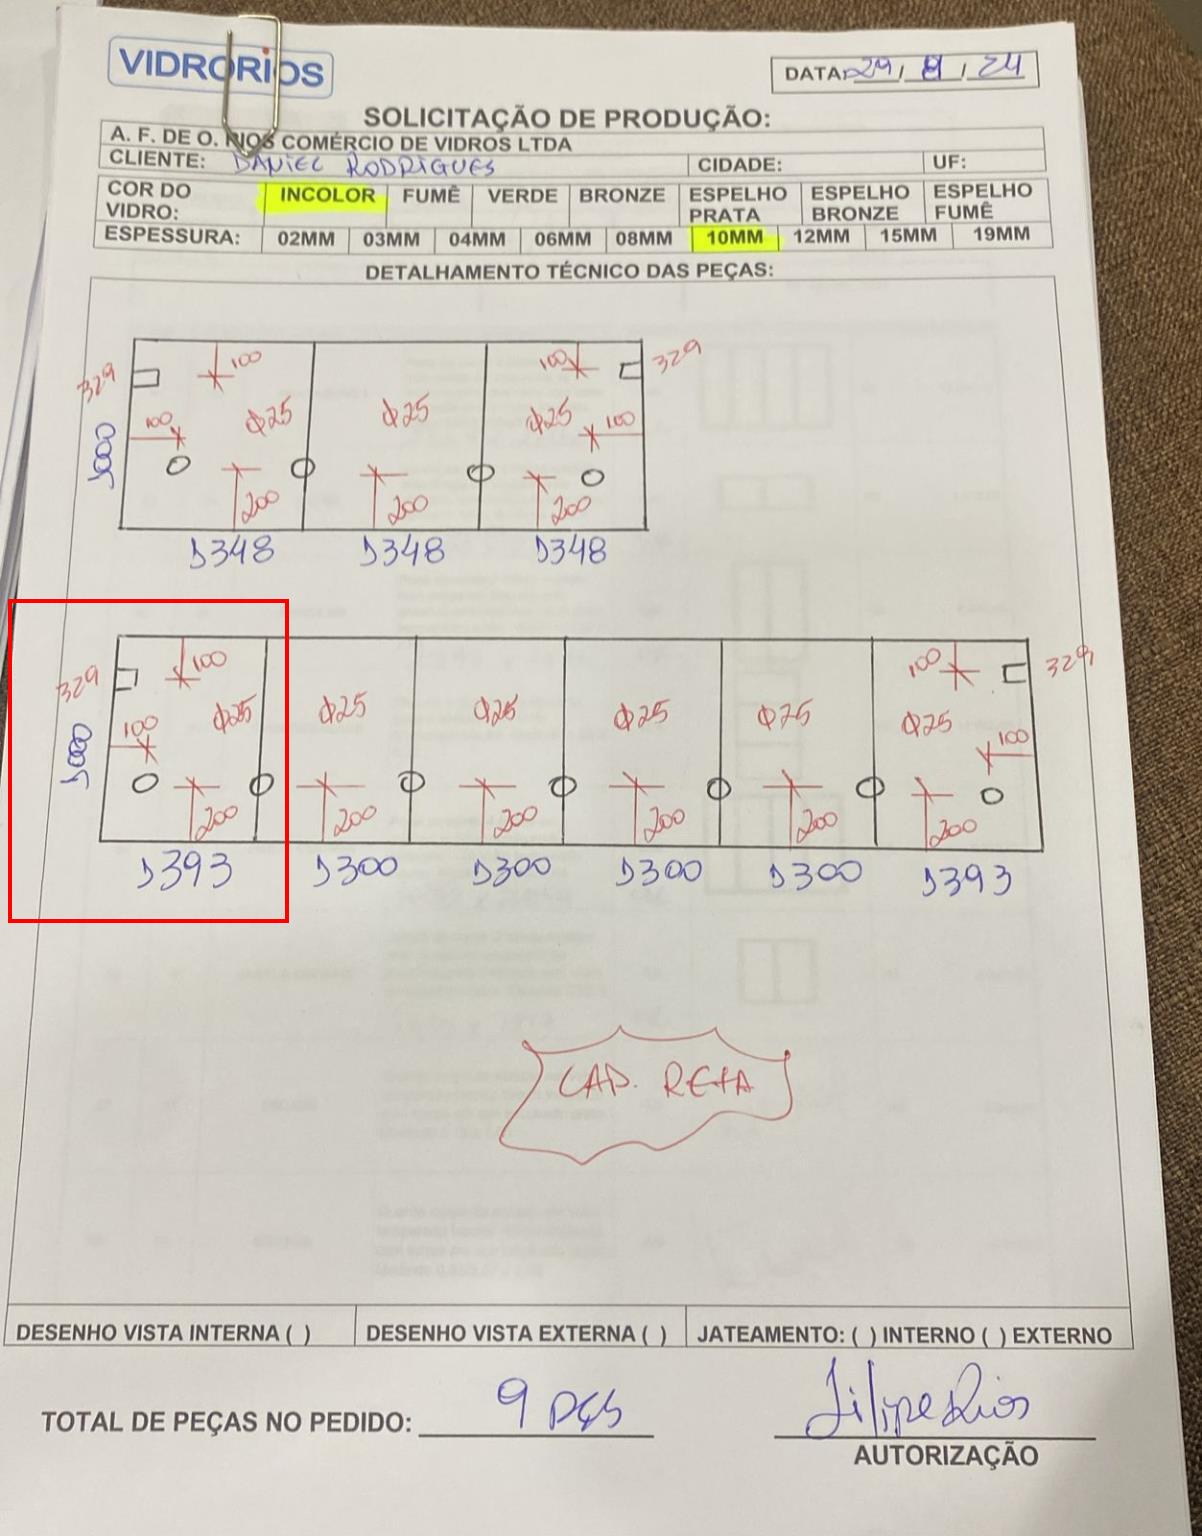 VIDRORiOS
DATA: 29 / 8 / 24
SOLICITAÇÃO DE PRODUÇÃO:
A. F. DE O. RIOS COMÉRCIO DE VIDROS LTDA
CLIENTE: DANIEL RODRIGUES CIDADE: UF:
COR DO VIDRO: INCOLOR FUMÊ VERDE BRONZE ESPELHO PRATA ESPELHO BRONZE ESPELHO FUMÊ
ESPESSURA: 02MM 03MM 04MM 06MM 08MM 10MM 12MM 15MM 19MM
DETALHAMENTO TÉCNICO DAS PEÇAS:
329 100 100 329
100 Φ25 Φ25 Φ25 100
200 200 200
348 348 348
329 100 100 329
100 Φ25 Φ25 Φ25 Φ25 Φ25 Φ25 100
200 200 200 200 200 200
393 300 300 300 300 393
LAP. RETA
DESENHO VISTA INTERNA ( ) DESENHO VISTA EXTERNA ( ) JATEAMENTO: ( ) INTERNO ( ) EXTERNO
TOTAL DE PEÇAS NO PEDIDO: 9 PÇS
Filipe Rios
AUTORIZAÇÃO